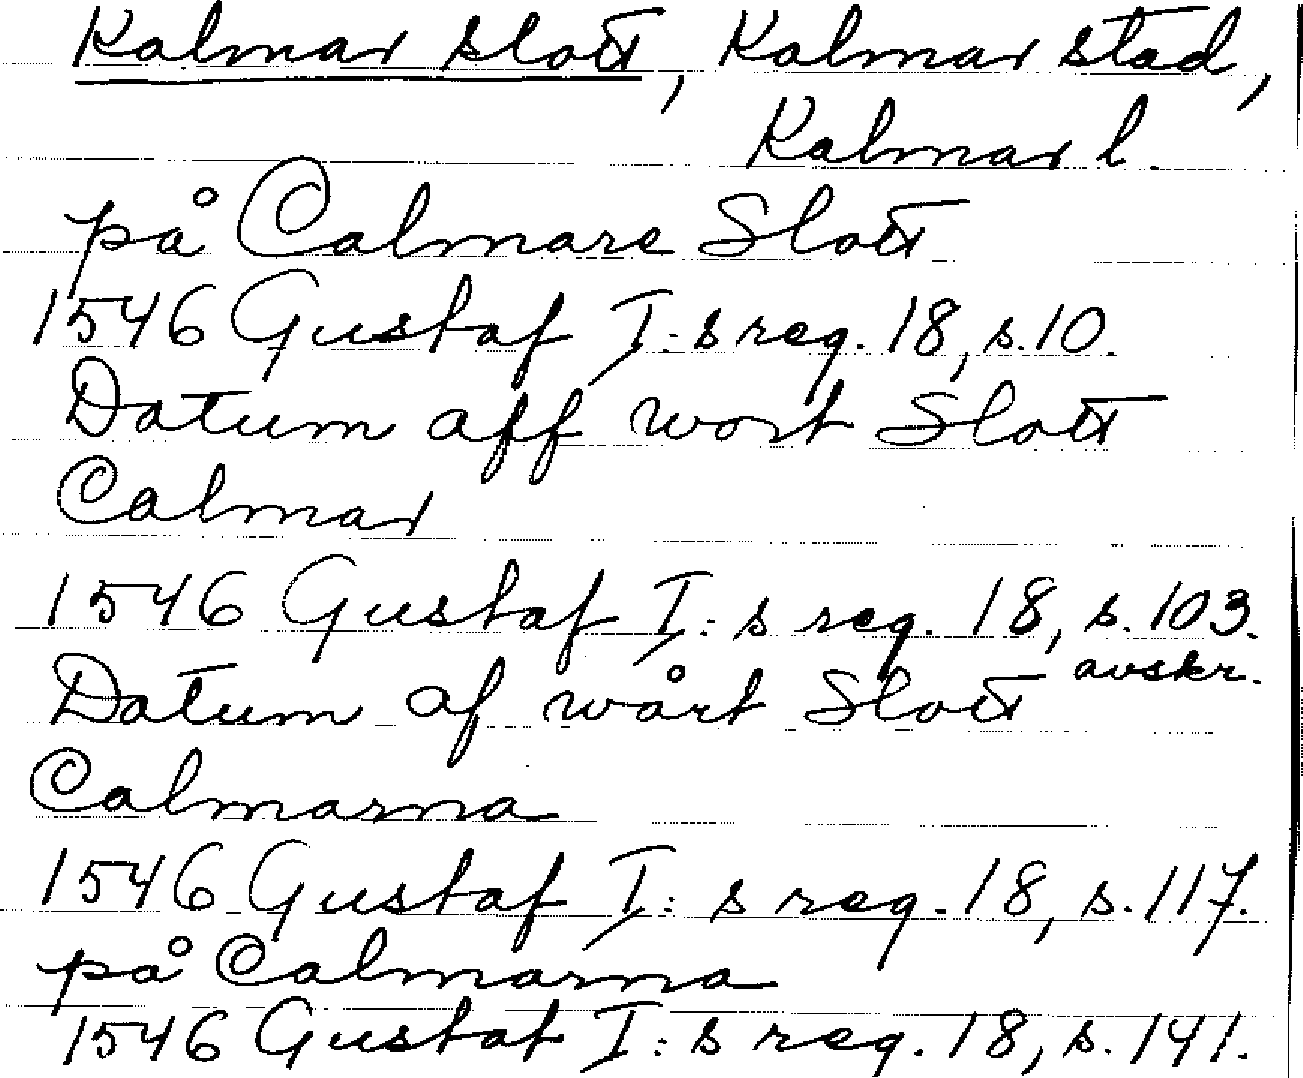 Kalmar slott, Kalmar stad,
Kalmar l.
på Calmare Slott
1546 Gustaf I:s reg. 18, s.10.
Datum aff wort Slott
Calmar
1546 Gustaf I:s reg. 18, s.103.
avskr.
Datum af wårt Slott
Calmarna
1546 Gustaf I:s reg. 18, s.117.
på Calmarna
1546 Gustaf I:s reg. 18, s.141.